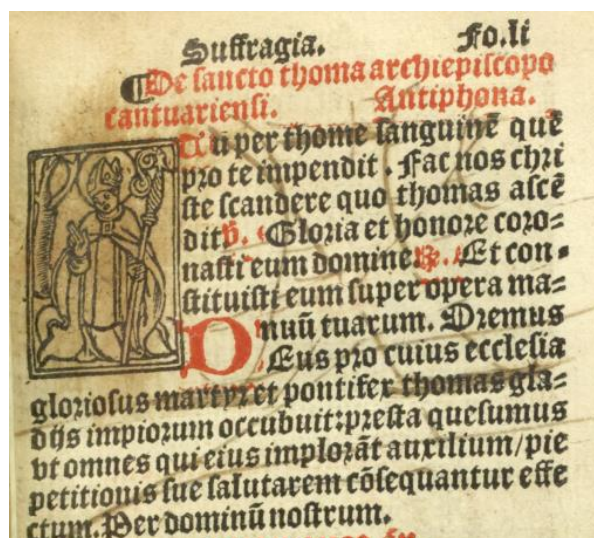 Suffragia. Fo.li
¶De sancto thoma archiepiscopo
cantuariensi. Antiphona.
Tu per thome sanguinē quē
pro te impendit. Fac nos chri
ste scandere quo thomas ascē
dit ℣. Gloria et honore coro=
nasti eum domine ℟. Et con=
stituisti eum super opera ma=
nuū tuarum. Oremus
DEus pro cuius ecclesia
gloriosus martyr et pontifex thomas gla=
dijs impiorum occubuit: presta quesumus
vt omnes qui eius implorāt auxilium/pie
petitionis sue salutarem cōsequantur effe
ctum. Per dominū nostrum.